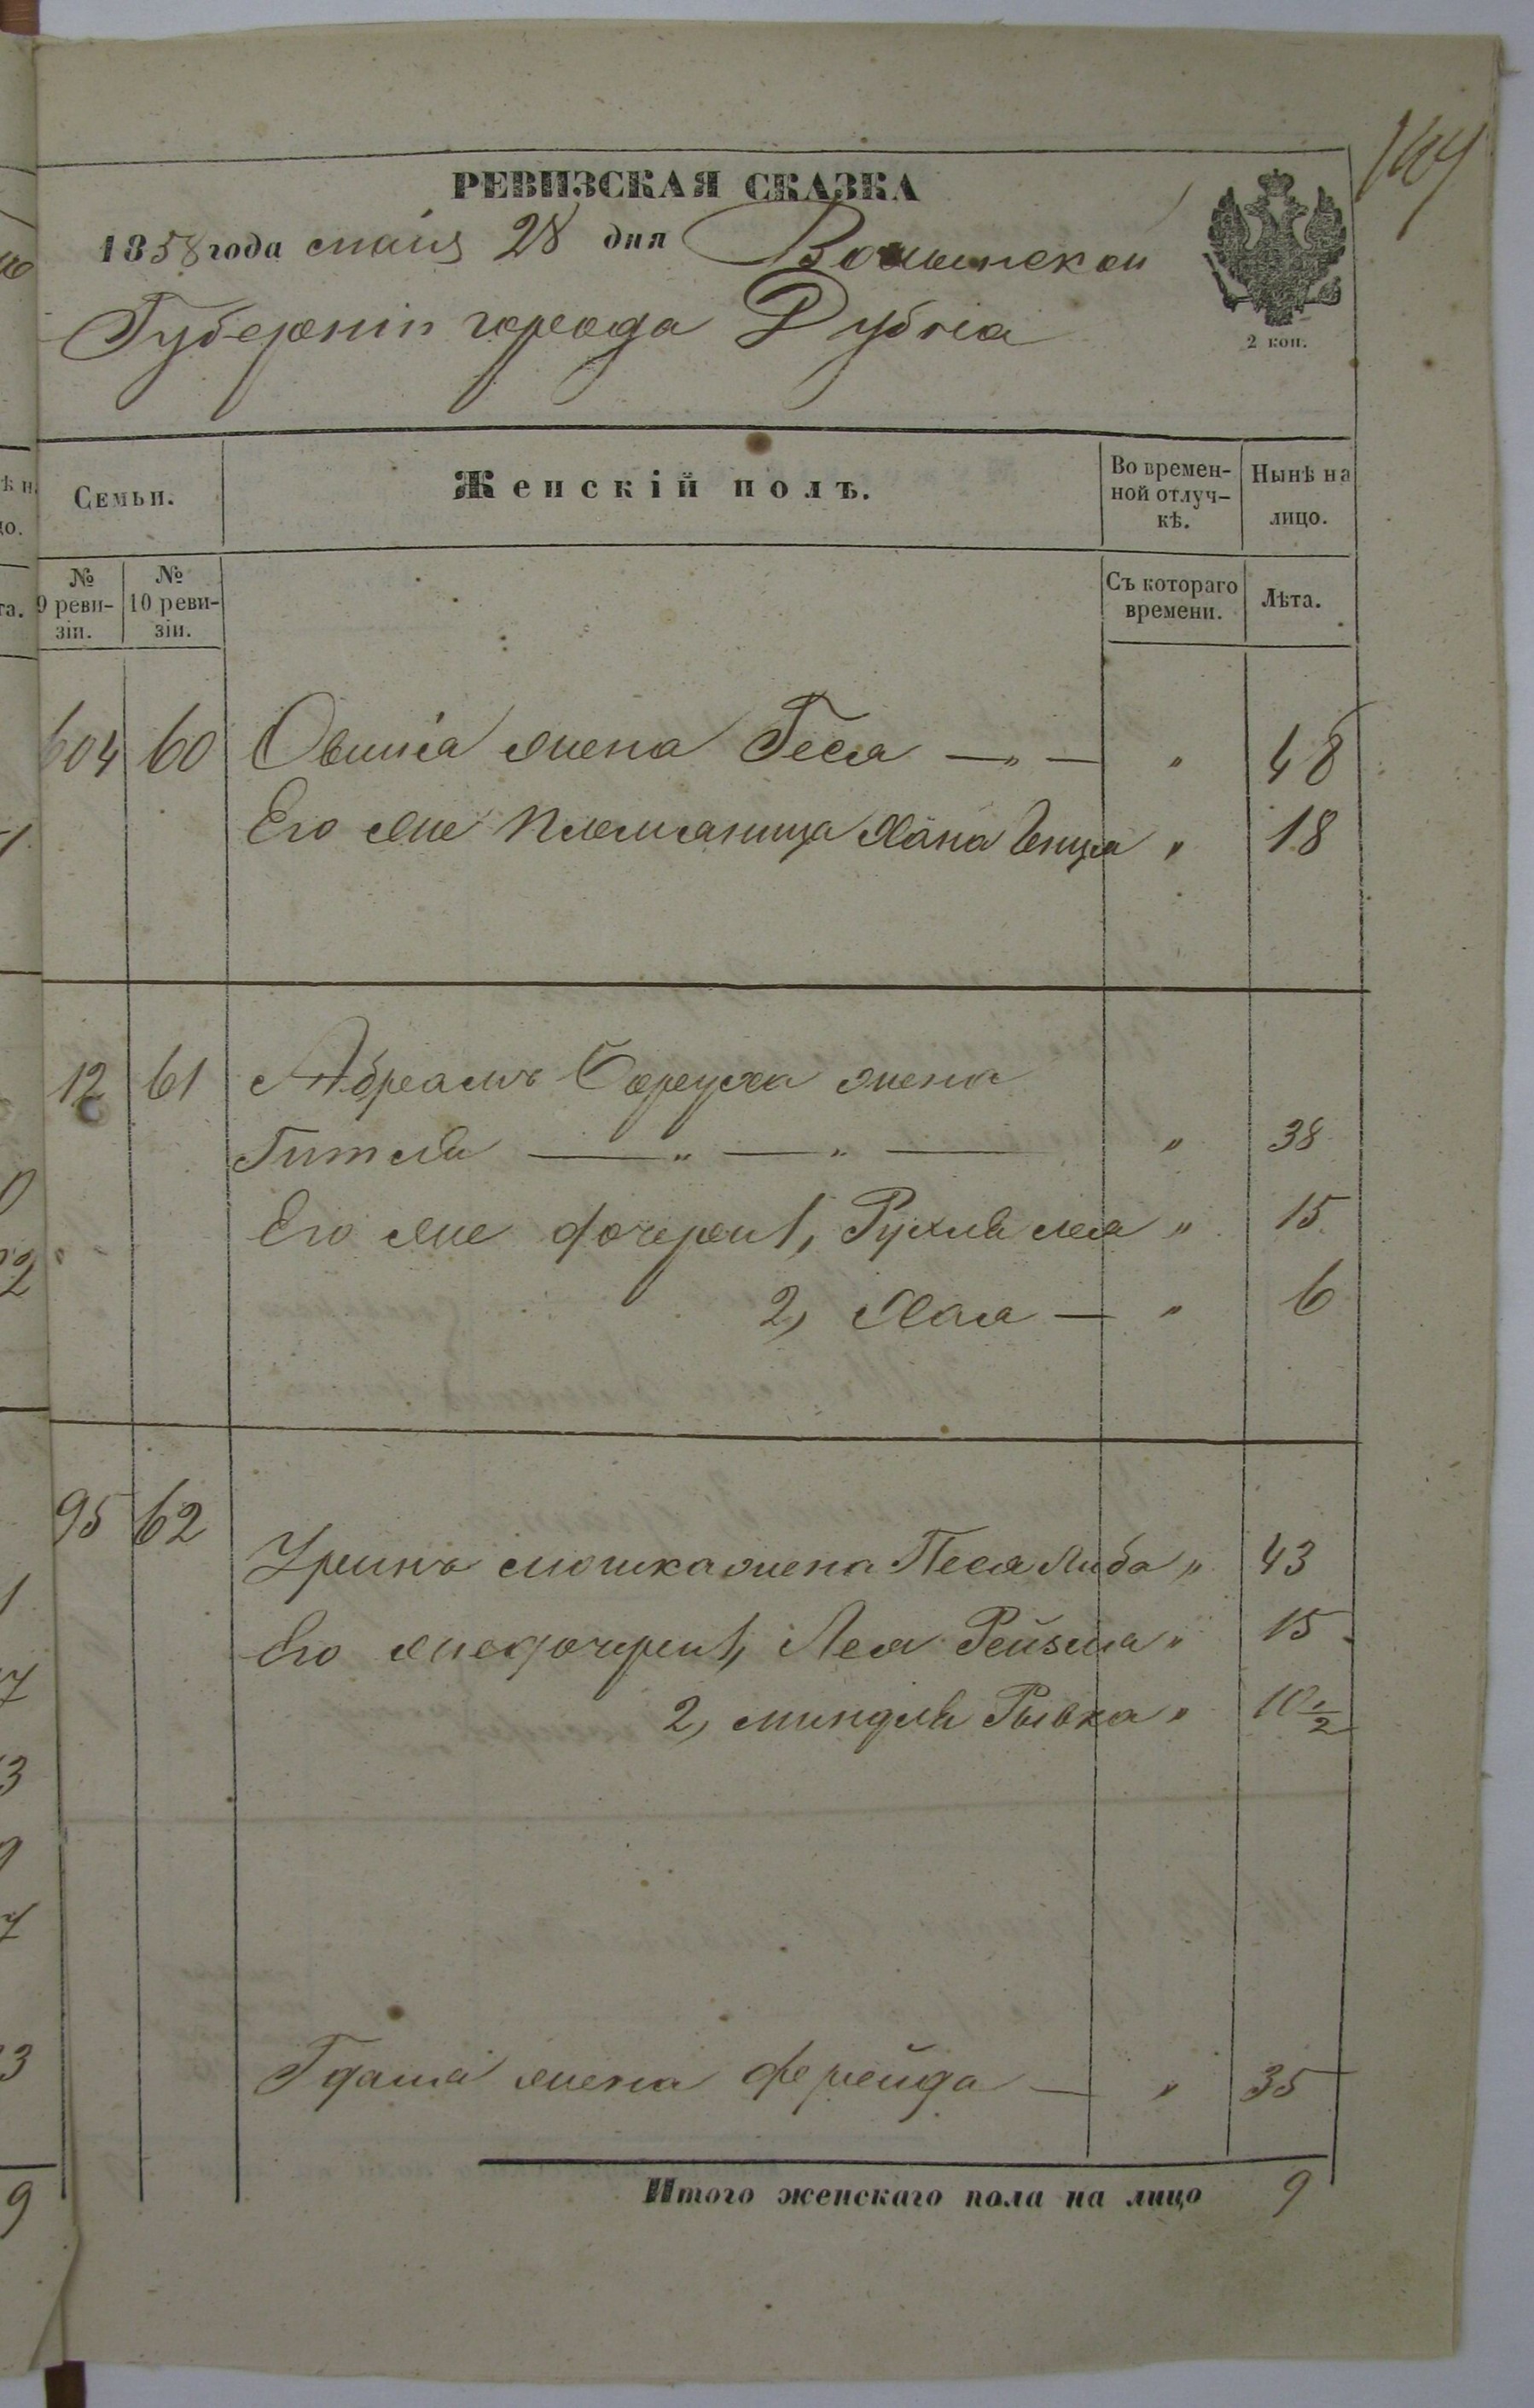 РЕВИЗСКАЯ СКАЗКА
1858 года маія 28 дня Волынской
Губерніи города Дубна
2 коп.
Семьи.
Женскій полъ.
Во времен-
ной отлуч-
кѣ.
Нынѣ на
лицо.
№
9 реви-
зіи.
№
10 реви-
зіи.
Съ котораго
времени.
Лѣта.
604 60 Овшіа жена Геся — „ — „ 48
Его же племяница Хана Енця „ 18
12 61 Абрамъ Боруха жена
Гитля — „ — „ — „ 38
Его же дочери 1, Рухля лея „ 15
2, Хая — „ 6
95 62 мошка жена Песя Либа „ 43
Его же дочери 1, Лея Рейзя „ 15
2, миндля Рывка „ 10 1/2
жена фрейда — „ 35
Итого женскаго пола на лицо 9